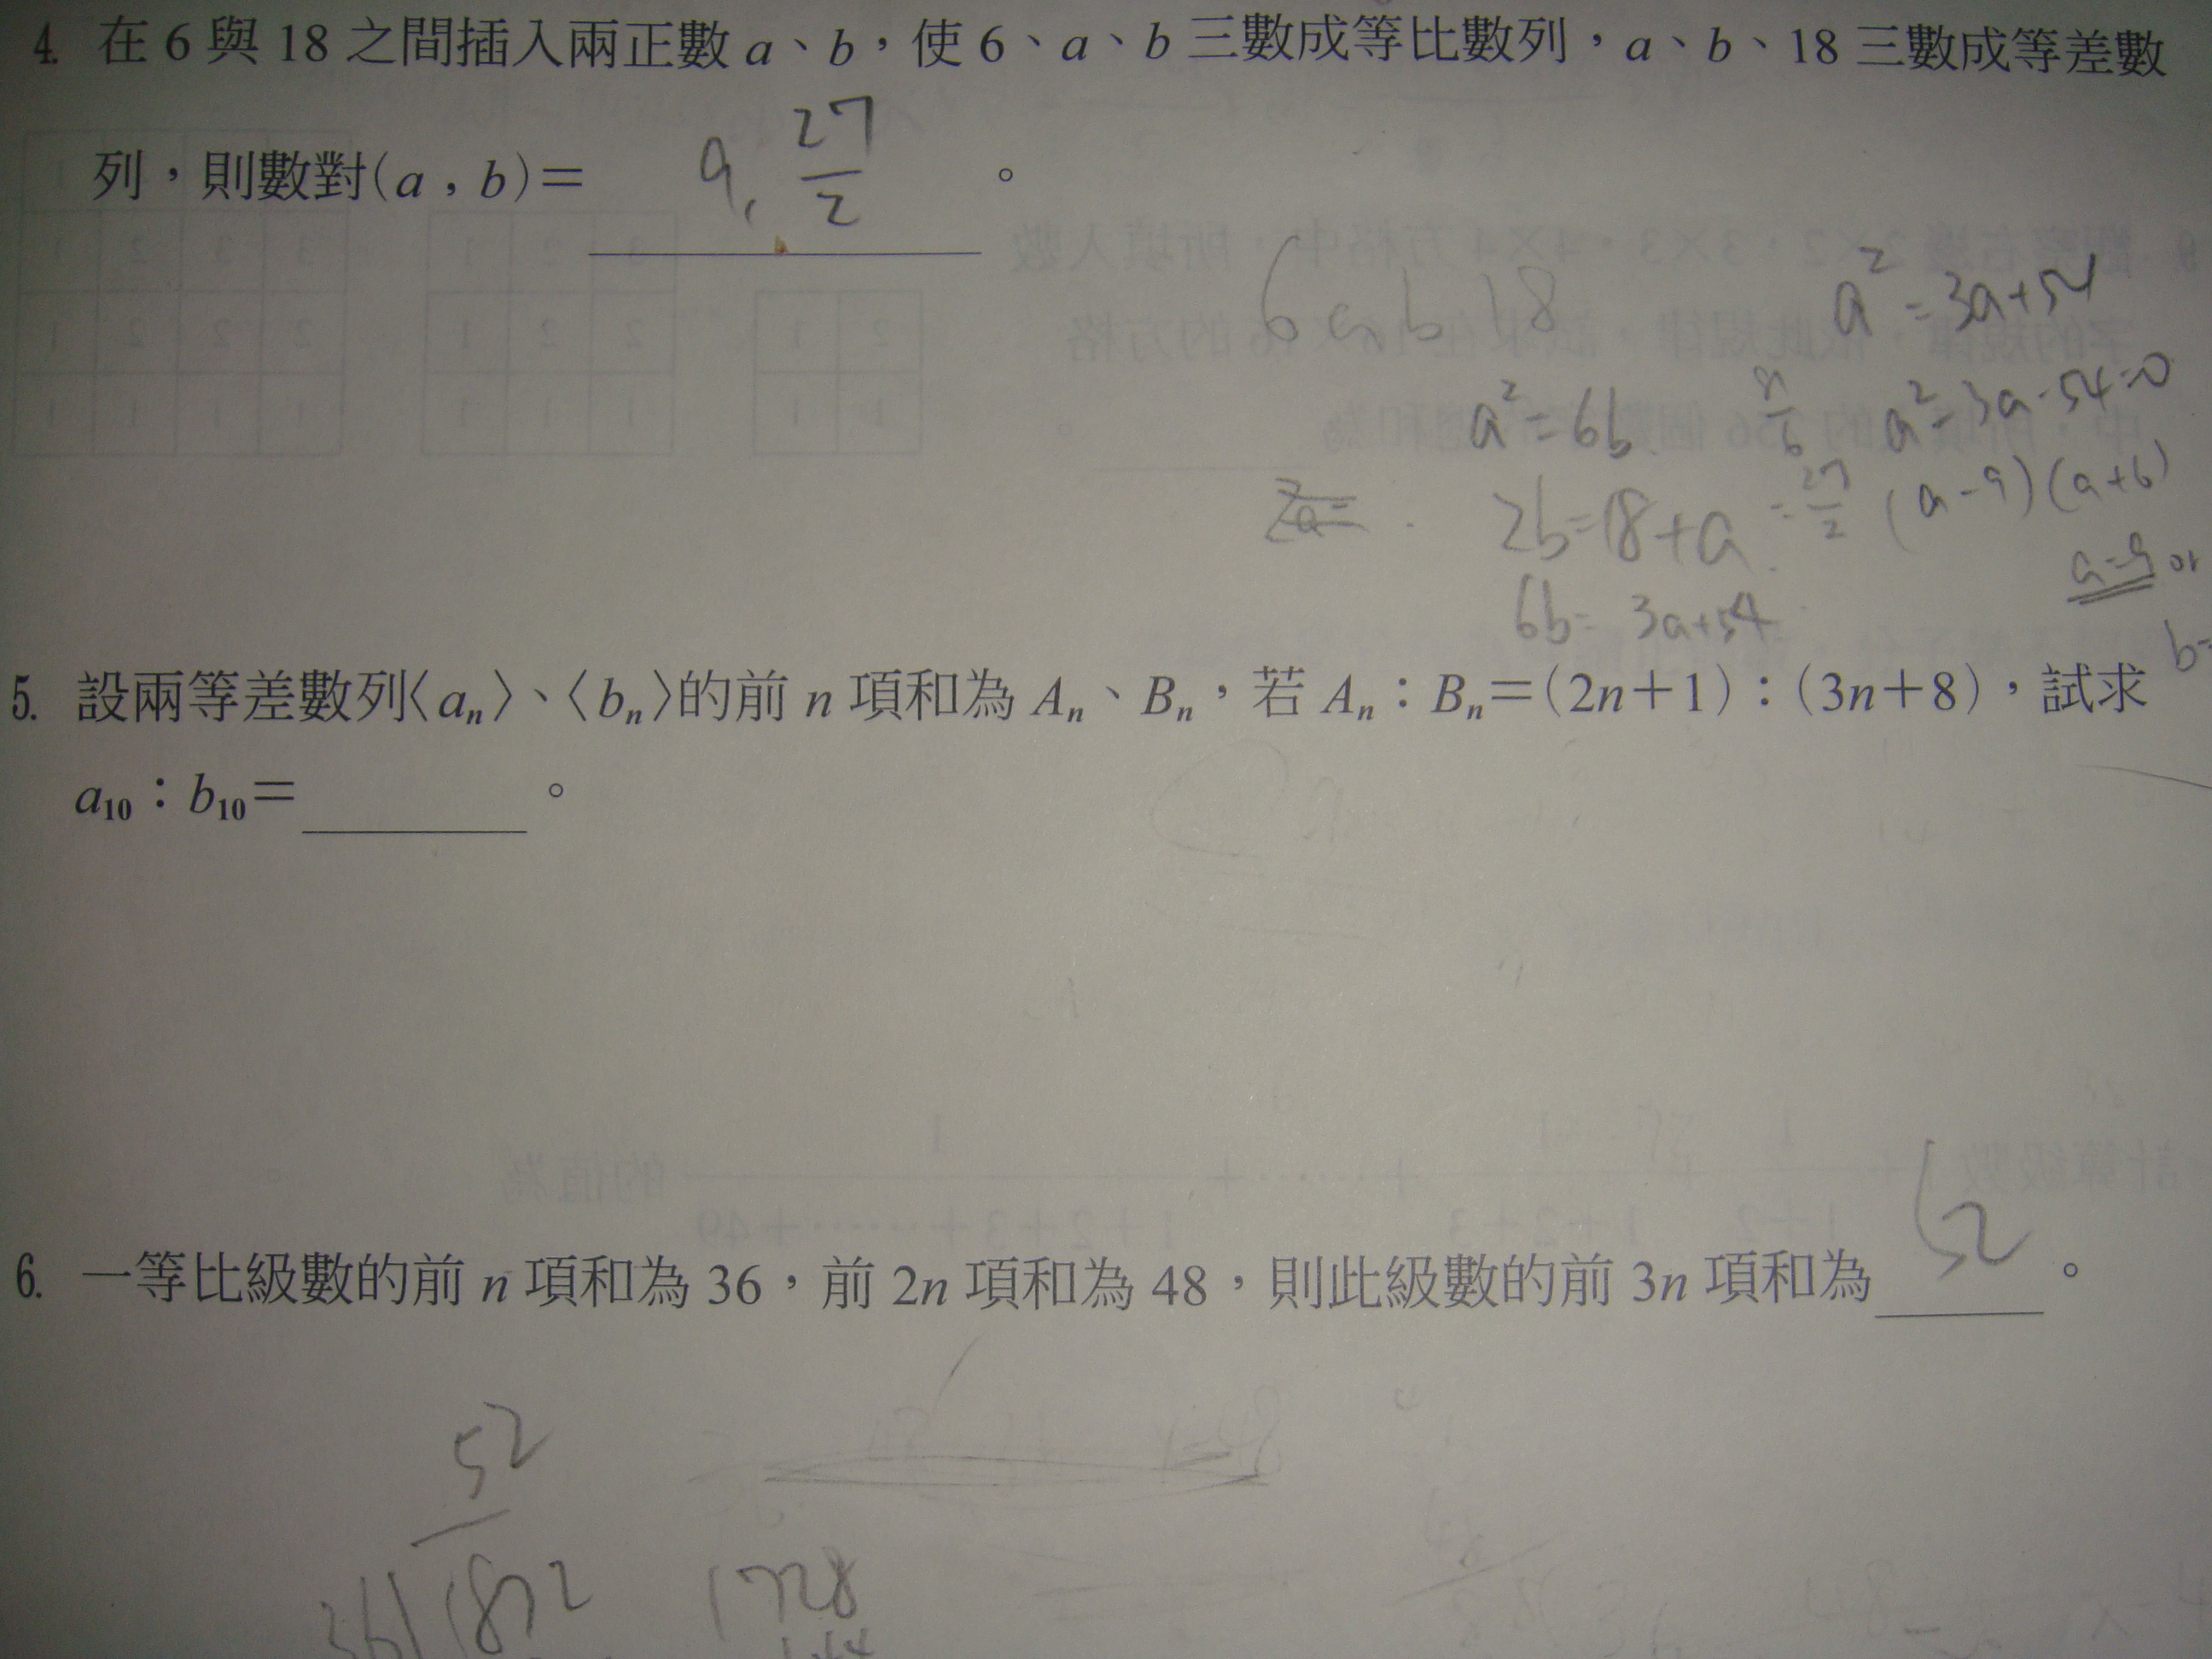 4. 在 6 與 18 之間插入兩正數 a、b，使 6、a、b 三數成等比數列，a、b、18 三數成等差數
列，則數對(a , b)＝ 9, 27/2 。
6 a b 18
a²=3a+54
a²=6b
a²-3a-54=0
2b=18+a
=27/2
(a-9)(a+6)
a=9 or
6b= 3a+54
b=
5. 設兩等差數列〈aₙ〉、〈bₙ〉的前 n 項和為 Aₙ、Bₙ，若 Aₙ：Bₙ＝(2n＋1)：(3n＋8)，試求
a₁₀：b₁₀＝ 。
6. 一等比級數的前 n 項和為 36，前 2n 項和為 48，則此級數的前 3n 項和為 52 。
52
36)1872 1728
144